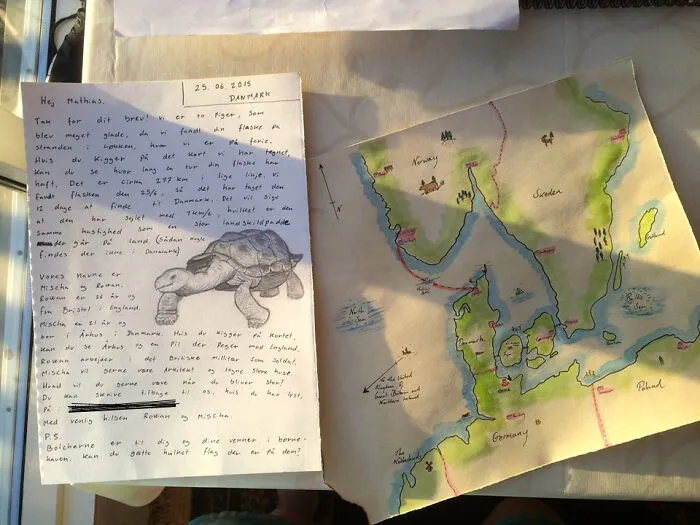 25. 06. 2015
DANMARK
Hej Mathias.
Tak for dit brev! vi er to Piger, som
blev meget glade, da vi fandt din flaske på
stranden i Løkken, hvor vi er på ferie.
Hvis du kigger på det kort vi har tegnet,
kan du se hvor lang en tur din flaske har
haft. Det er cirka 277 km i lige linje. vi
fandt flasken den 25/6, så det har taget den
12 dage at finde til Danmark. Det vil sige
at den har sejlet med 1 km/t, hvilket er den
samme hastighed som en stor landskildpadde
der går på land. (Sådan nogle
findes der ikke i Danmark)
Vores navne er
Mischa og Rowan.
Rowan er 28 år og
fra Bristol i England.
Mischa er 21 år og
bor i Århus i Danmark. Hvis du kigger på kortet,
kan du se Århus og en Pil der Peger mod England.
Rowan arbejder i det Britiske militær som soldat,
Mischa vil gerne være Arkitekt og tegne store huse.
Hvad vil du gerne være når du bliver stor?
Du kan skrive tilbage til os, hvis du har lyst,
På:
Med venlig hilsen Rowan og Mischa.
P.S.
Bolcherne er til dig og dine venner i børne-
haven. kan du gætte hvilket flag der er på dem?
N
Norway
Sweden
Gotland
North
Sea
Baltic
Sea
Denmark
To the United
Kingdom of
Great Britain and
Northern Ireland
Poland
Germany
The
Netherlands